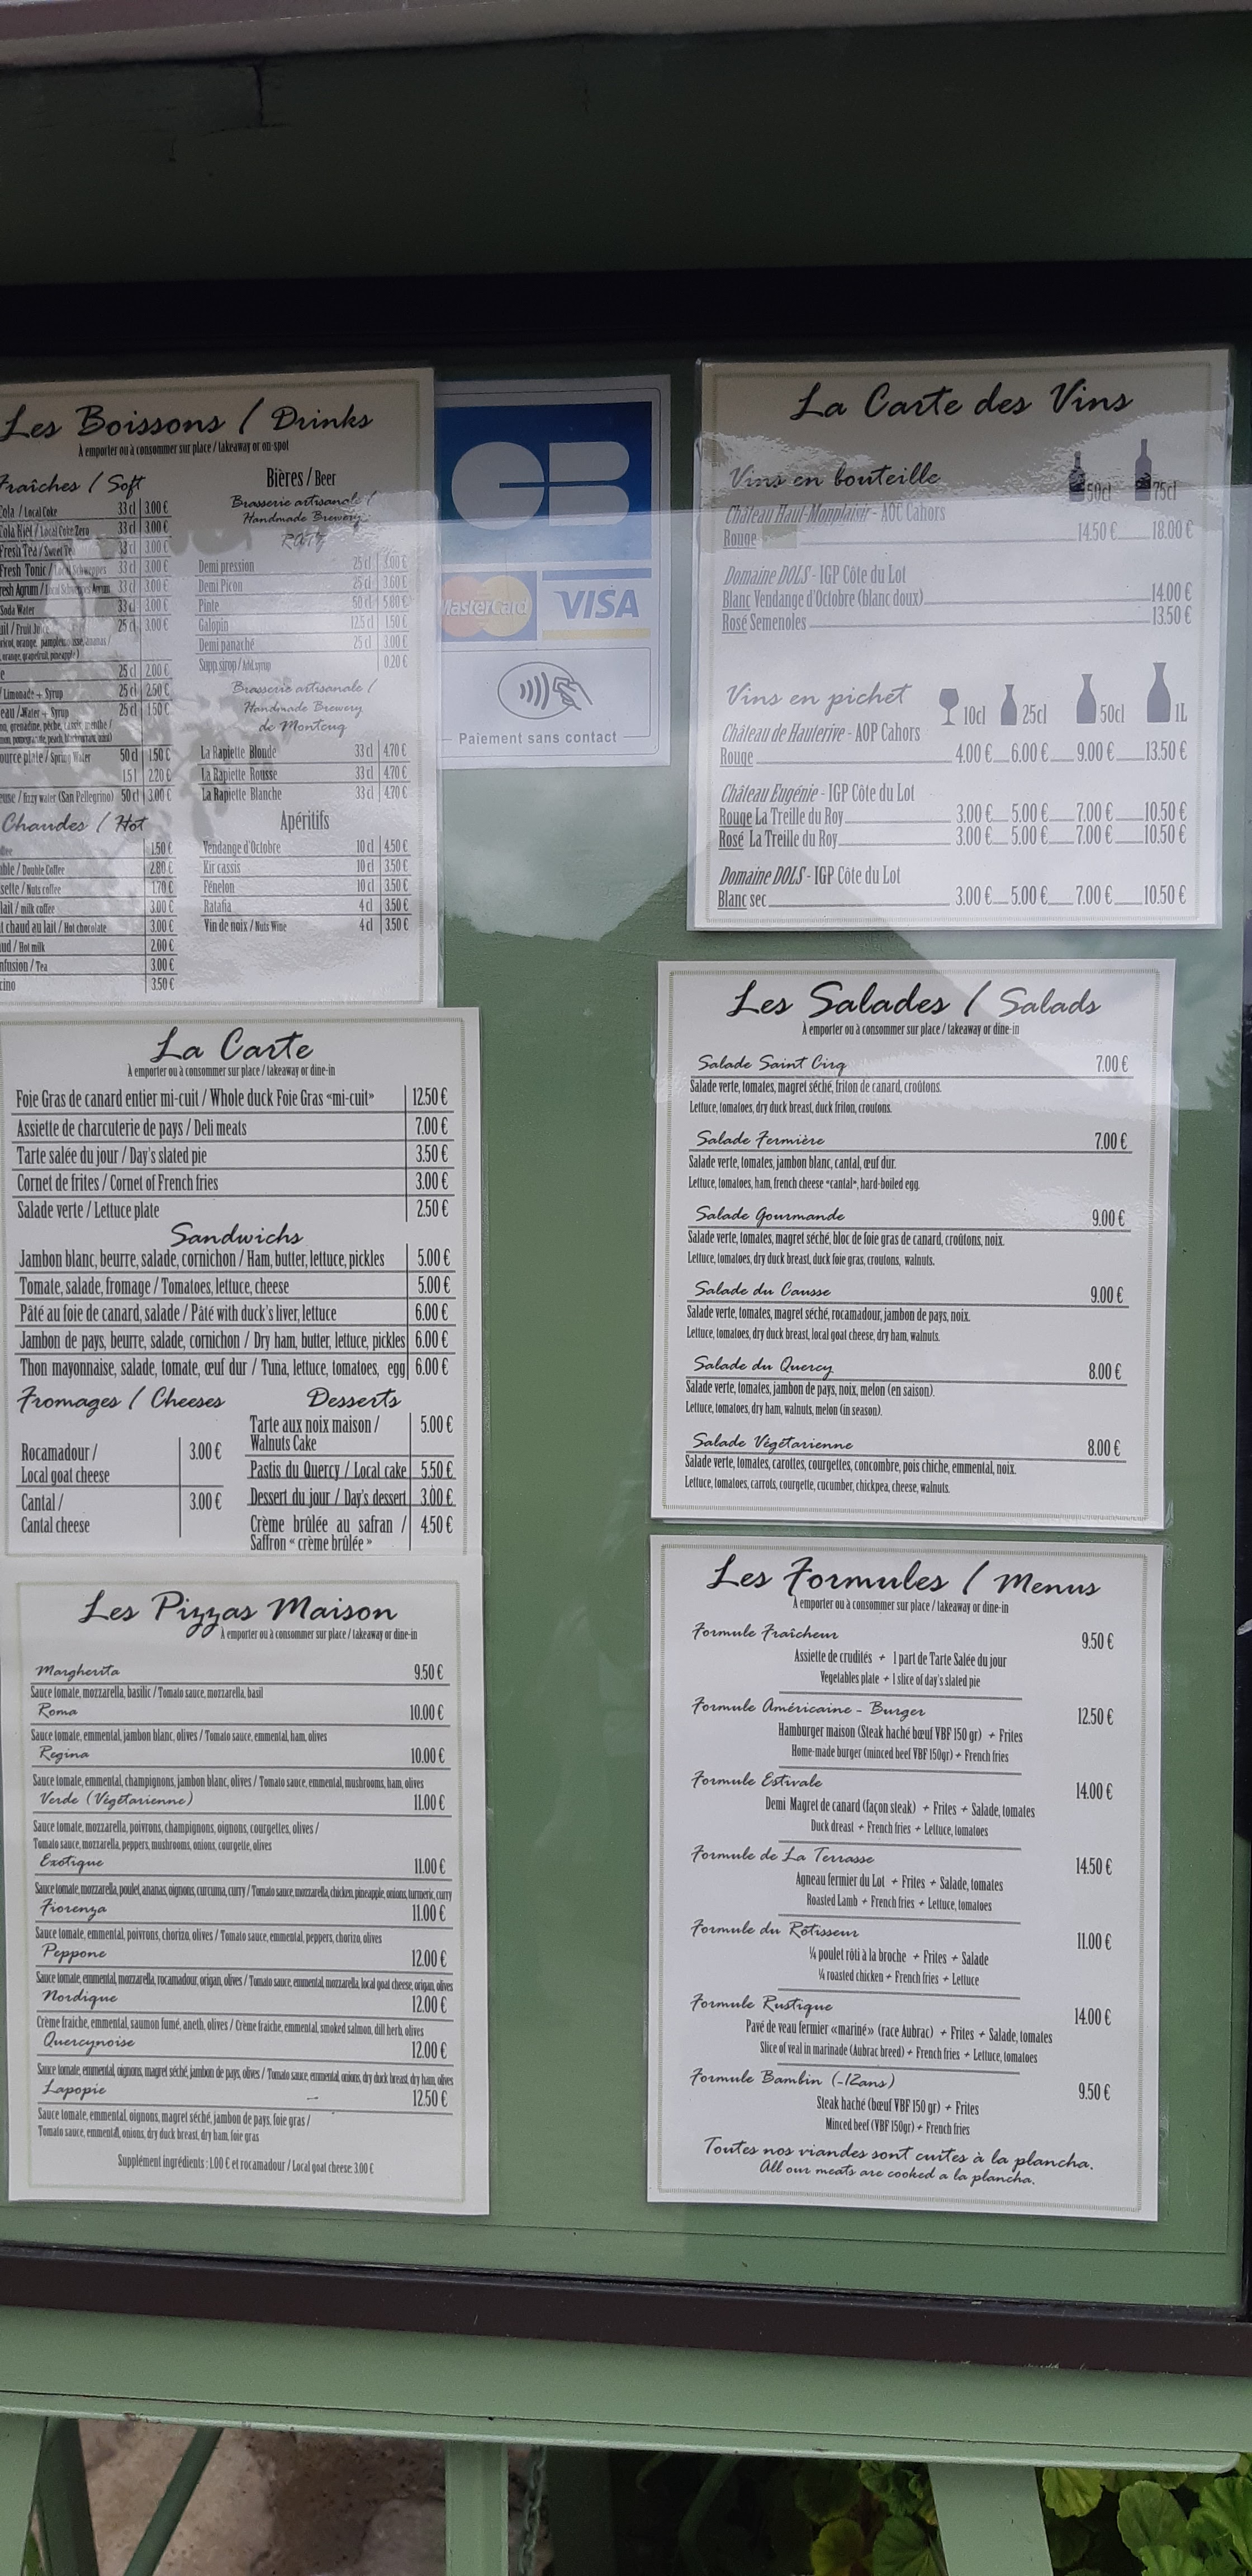 Les Boissons / Drinks
À emporter ou à consommer sur place / takeaway or on-spot
Fraîches / Soft
Cola / Local Coke 33 cl 3.00 €
Cola Rief / Local Coke Zero 33 cl 3.00 €
Fresh Tea / Sweet Tea 33 cl 3.00 €
Fresh Tonic / Local Schweppes 33 cl 3.00 €
resh Agrum / Local Schweppes Agrum 33 cl 3.00 €
Soda Water 33 cl 3.00 €
uit / Fruit Juice 25 cl 3.00 €
ricot, orange, pamplemousse, ananas /
orange, grapefruit, pineapple)
e 25 cl 2.00 €
/ Limonade + Syrup 25 cl 2.50 €
eau / Water + Syrup 25 cl 1.50 €
on, grenadine, pêche, cassis, menthe /
mon, pomegranate, peach, blackcurrant, mint)
ource plate / Spring Water 50 cl 1.50 €
1.5 l 2.20 €
euse / fizzy water (San Pellegrino) 50 cl 3.00 €
Chaudes / Hot
1.50 €
ble / Double Coffee 2.80 €
sette / Nuts coffee 1.70 €
lait / milk coffee 3.00 €
t chaud au lait / Hot chocolate 3.00 €
ud / Hot milk 2.00 €
nfusion / Tea 3.00 €
cino 3.50 €
Bières / Beer
Brasserie artisanale /
Handmade Brewery
RATZ
Demi pression 25 cl 3.00 €
Demi Picon 25 cl 3.60 €
Pinte 50 cl 5.80 €
Galopin 12.5 cl 1.50 €
Demi panaché 25 cl 3.00 €
Supp. sirop / Add. syrup 0.20 €
Brasserie artisanale /
Handmade Brewery
de Montcuq
La Rapiette Blonde 33 cl 4.70 €
La Rapiette Rousse 33 cl 4.70 €
La Rapiette Blanche 33 cl 4.70 €
Apéritifs
Vendange d'Octobre 10 cl 4.50 €
Kir cassis 10 cl 3.50 €
Fénelon 10 cl 3.50 €
Ratafia 4 cl 3.50 €
Vin de noix / Nuts Wine 4 cl 3.50 €
CB
MasterCard VISA
Paiement sans contact
La Carte des Vins
Vins en bouteille 50cl 75cl
Château Haut-Monplaisir - AOC Cahors
Rouge 14.50 € 18.00 €
Domaine DOLS - IGP Côte du Lot
Blanc Vendange d'Octobre (blanc doux) 14.00 €
Rosé Semenoles 13.50 €
Vins en pichet 10cl 25cl 50cl 1L
Château de Hauterive - AOP Cahors
Rouge 4.00 € 6.00 € 9.00 € 13.50 €
Château Eugénie - IGP Côte du Lot
Rouge La Treille du Roy 3.00 € 5.00 € 7.00 € 10.50 €
Rosé La Treille du Roy 3.00 € 5.00 € 7.00 € 10.50 €
Domaine DOLS - IGP Côte du Lot
Blanc sec 3.00 € 5.00 € 7.00 € 10.50 €
La Carte
À emporter ou à consommer sur place / takeaway or dine-in
Foie Gras de canard entier mi-cuit / Whole duck Foie Gras «mi-cuit» 12.50 €
Assiette de charcuterie de pays / Deli meats 7.00 €
Tarte salée du jour / Day's slated pie 3.50 €
Cornet de frites / Cornet of French fries 3.00 €
Salade verte / Lettuce plate 2.50 €
Sandwichs
Jambon blanc, beurre, salade, cornichon / Ham, butter, lettuce, pickles 5.00 €
Tomate, salade, fromage / Tomatoes, lettuce, cheese 5.00 €
Pâté au foie de canard, salade / Pâté with duck's liver, lettuce 6.00 €
Jambon de pays, beurre, salade, cornichon / Dry ham, butter, lettuce, pickles 6.00 €
Thon mayonnaise, salade, tomate, œuf dur / Tuna, lettuce, tomatoes, egg 6.00 €
Fromages / Cheeses
Rocamadour / 3.00 €
Local goat cheese
Cantal / 3.00 €
Cantal cheese
Desserts
Tarte aux noix maison / 5.00 €
Walnuts Cake
Pastis du Quercy / Local cake 5.50 €
Dessert du jour / Day's dessert 3.00 €
Crème brûlée au safran / 4.50 €
Saffron « crème brûlée »
Les Salades / Salads
À emporter ou à consommer sur place / takeaway or dine-in
Salade Saint Cirq 7.00 €
Salade verte, tomates, magret séché, friton de canard, croûtons.
Lettuce, tomatoes, dry duck breast, duck friton, croutons.
Salade Fermière 7.00 €
Salade verte, tomates, jambon blanc, cantal, œuf dur.
Lettuce, tomatoes, ham, french cheese "cantal", hard-boiled egg.
Salade Gourmande 9.00 €
Salade verte, tomates, magret séché, bloc de foie gras de canard, croûtons, noix.
Lettuce, tomatoes, dry duck breast, duck foie gras, croutons, walnuts.
Salade du Causse 9.00 €
Salade verte, tomates, magret séché, rocamadour, jambon de pays, noix.
Lettuce, tomatoes, dry duck breast, local goat cheese, dry ham, walnuts.
Salade du Quercy 8.00 €
Salade verte, tomates, jambon de pays, noix, melon (en saison).
Lettuce, tomatoes, dry ham, walnuts, melon (in season).
Salade Végétarienne 8.00 €
Salade verte, tomates, carottes, courgettes, concombre, pois chiche, emmental, noix.
Lettuce, tomatoes, carrots, courgette, cucumber, chickpea, cheese, walnuts.
Les Pizzas Maison
À emporter ou à consommer sur place / takeaway or dine-in
Margherita 9.50 €
Sauce tomate, mozzarella, basilic / Tomato sauce, mozzarella, basil
Roma 10.00 €
Sauce tomate, emmental, jambon blanc, olives / Tomato sauce, emmental, ham, olives
Regina 10.00 €
Sauce tomate, emmental, champignons, jambon blanc, olives / Tomato sauce, emmental, mushrooms, ham, olives
Verde (Végétarienne) 11.00 €
Sauce tomate, mozzarella, poivrons, champignons, oignons, courgettes, olives /
Tomato sauce, mozzarella, peppers, mushrooms, onions, courgette, olives
Exotique 11.00 €
Sauce tomate, mozzarella, poulet, ananas, oignons, curcuma, curry / Tomato sauce, mozzarella, chicken, pineapple, onions, turmeric, curry
Fiorenza 11.00 €
Sauce tomate, emmental, poivrons, chorizo, olives / Tomato sauce, emmental, peppers, chorizo, olives
Peppone 12.00 €
Sauce tomate, emmental, mozzarella, rocamadour, origan, olives / Tomato sauce, emmental, mozzarella, local goat cheese, origan, olives
Nordique 12.00 €
Crème fraiche, emmental, saumon fumé, aneth, olives / Crème fraiche, emmental, smoked salmon, dill herb, olives
Quercynoise 12.00 €
Sauce tomate, emmental, oignons, magret séché, jambon de pays, olives / Tomato sauce, emmental, onions, dry duck breast, dry ham, olives
Lapopie 12.50 €
Sauce tomate, emmental, oignons, magret séché, jambon de pays, foie gras /
Tomato sauce, emmental, onions, dry duck breast, dry ham, foie gras
Supplément ingrédients : 1.00 € et rocamadour / Local goat cheese 3.00 €
Les Formules / Menus
À emporter ou à consommer sur place / takeaway or dine-in
Formule Fraîcheur 9.50 €
Assiette de crudités + 1 part de Tarte Salée du jour
Vegetables plate + 1 slice of day's slated pie
Formule Américaine - Burger 12.50 €
Hamburger maison (Steak haché bœuf VBF 150 gr) + Frites
Home-made burger (minced beef VBF 150gr) + French fries
Formule Estivale 14.00 €
Demi Magret de canard (façon steak) + Frites + Salade, tomates
Duck dreast + French fries + Lettuce, tomatoes
Formule de La Terrasse 14.50 €
Agneau fermier du Lot + Frites + Salade, tomates
Roasted Lamb + French fries + Lettuce, tomatoes
Formule du Rôtisseur 11.00 €
¼ poulet rôti à la broche + Frites + Salade
¼ roasted chicken + French fries + Lettuce
Formule Rustique 14.00 €
Pavé de veau fermier «mariné» (race Aubrac) + Frites + Salade, tomates
Slice of veal in marinade (Aubrac breed) + French fries + Lettuce, tomatoes
Formule Bambin (-12ans) 9.50 €
Steak haché (bœuf VBF 150 gr) + Frites
Minced beef (VBF 150gr) + French fries
Toutes nos viandes sont cuites à la plancha.
All our meats are cooked a la plancha.